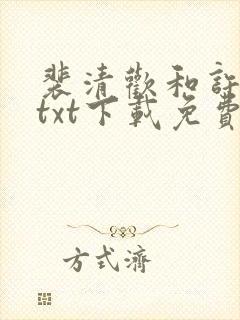 裴清歡和
txt下載免費
方式濟